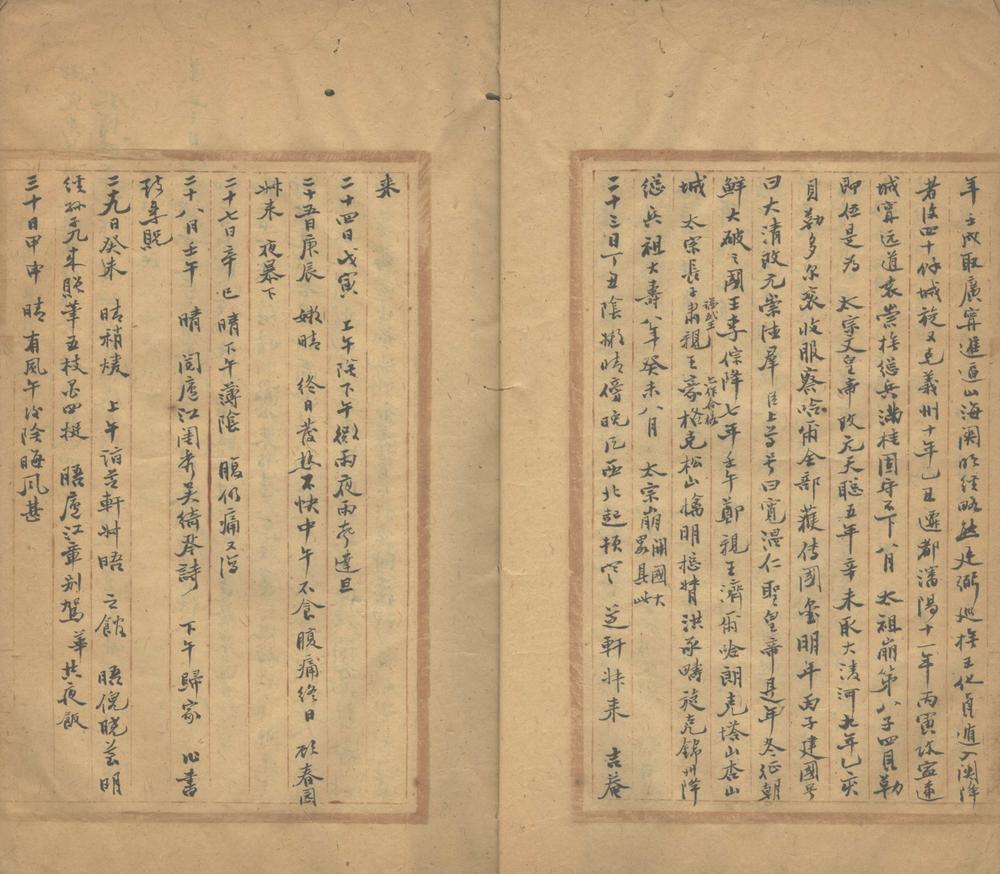 年壬戌取廣寧進逼山海関明經略熊廷弼巡撫王化貞遁入関降
者復四十餘城旋又克義州十年乙丑遷都瀋陽十一年丙寅攻寧遠
城寧远道袁崇焕總兵滿桂固守不下八月 太祖崩第八子四貝勒
即位是為 太宗文皇帝改元天聪五年辛未取大凌河九年乙亥
貝勒多尔袞收服察哈爾全部獲傳國璽明年丙子建國号
曰大清改元崇德羣臣上尊号曰寬温仁聖皇帝是年冬征朝
鮮大破之國王李倧降七年壬午鄭親王濟爾哈朗克塔山杏山
城 太宗長子肅親王豪格克松山擒明總督洪承疇旋克錦州降
總兵祖大壽八年癸未八月 太宗崩開國大畧具此
二十三日丁丑陰嫩晴傍晚风西北起頓寒 芝軒姊来 吉菴
来
二十四日戊寅 上午陰下午微雨夜雨达旦
二十五日庚辰 嫩晴 終日發热不快中午不食腹痛終日 顾春园
姊来 夜暴下
二十七日辛巳晴下午薄陰 腹仍痛又瀉
二十八日壬午 晴 閱廬江閨秀吴綺卺詩 下午歸家 作書
致尊貺
二九日癸未 晴稍煖 上午詣芝軒姊晤 之館 晤倪曉芸明
經孙子元来贶筆五枝墨四挺 晤廬江章别驾華 共夜飯
三十日甲申 晴 有風午後陰晦风甚